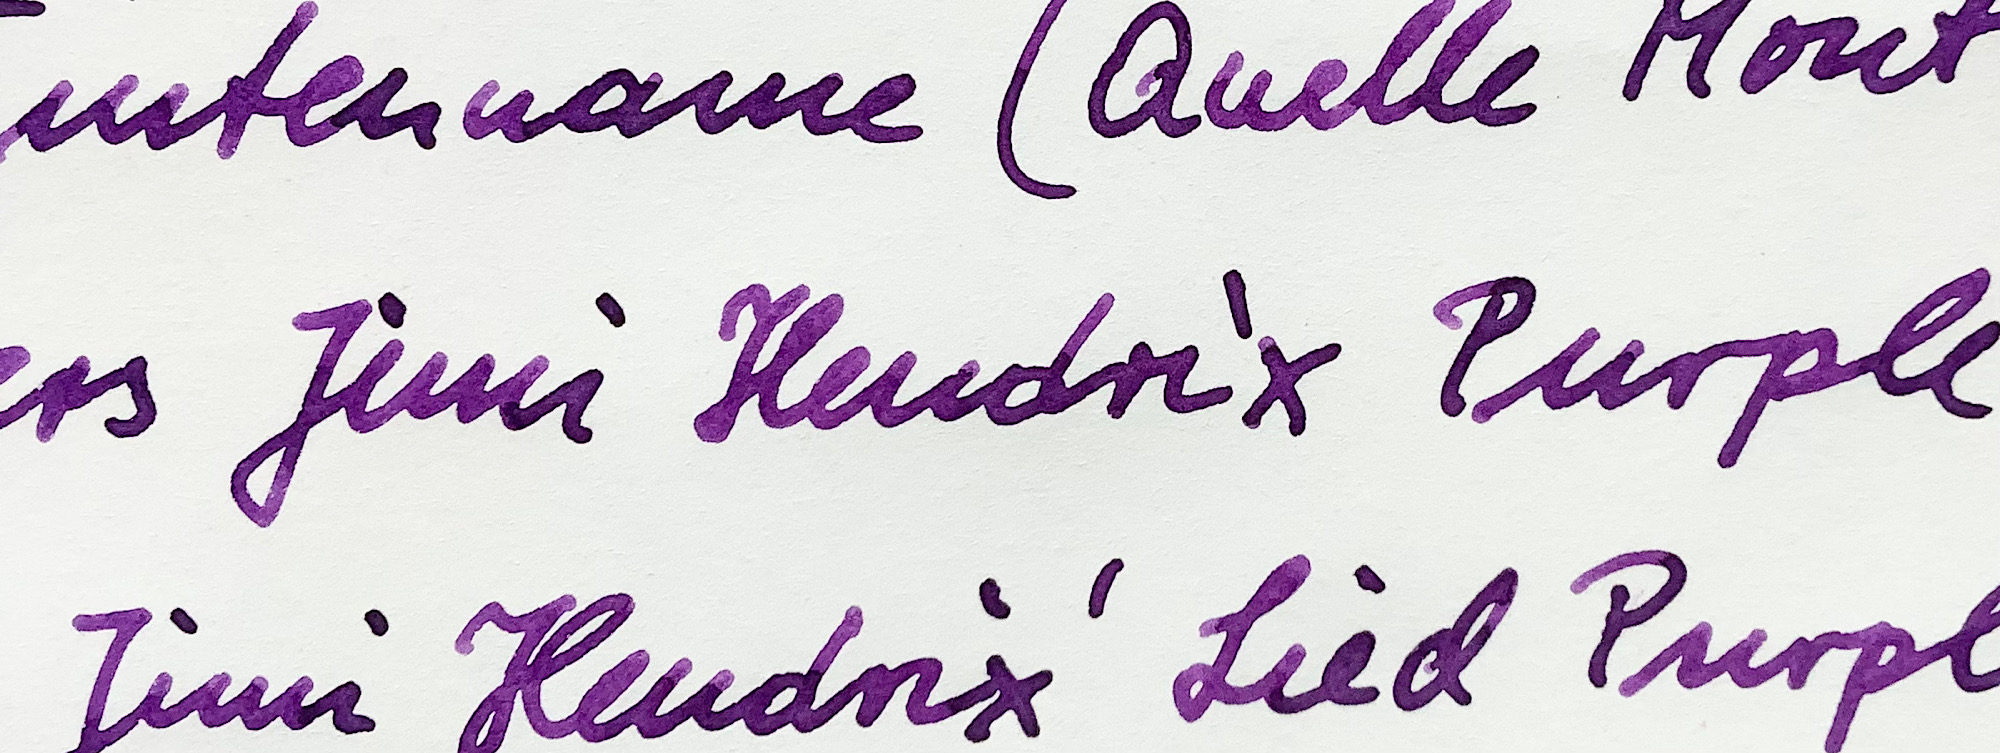 Tintenname (Quelle Mont
ers Jimi Hendrix Purple
Jimi Hendrix' Lied Purpl